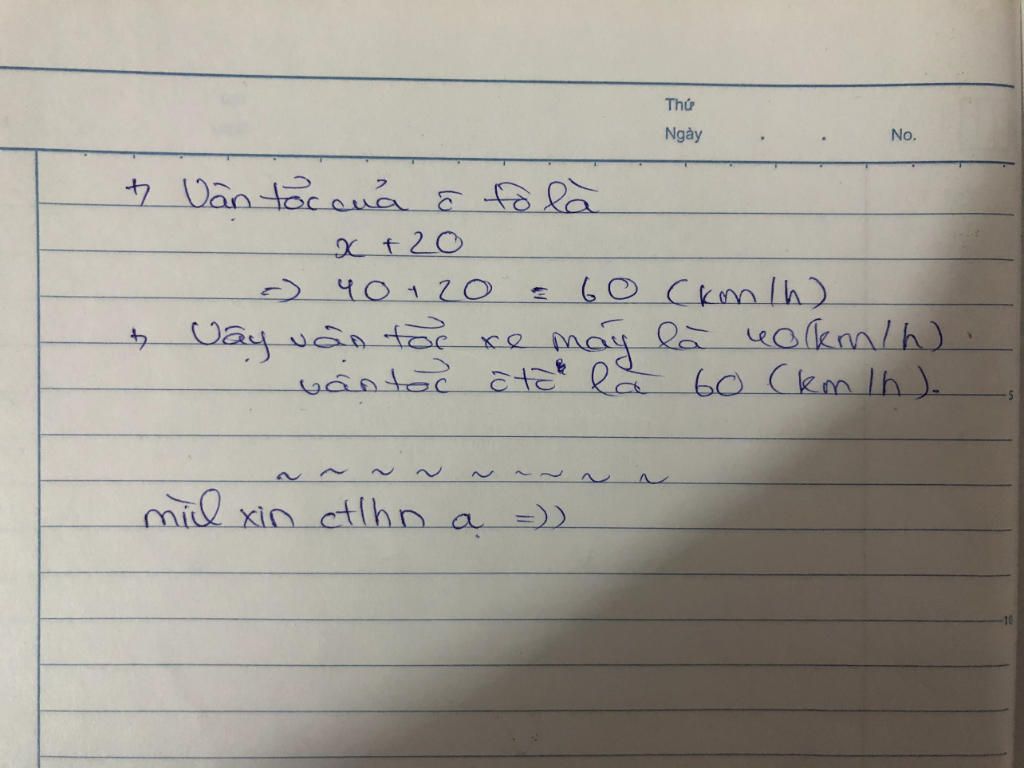 Thứ
Ngày . . No.
+) Vận tốc của ô tô là
x + 20
=> 40 + 20 = 60 (km/h)
+) Vậy vận tốc xe máy là 40(km/h).
vận tốc ô tô là 60 (km/h).
5
~ ~ ~ ~ ~ ~ ~ ~ ~
mìl xin ctlhn ạ =))
10